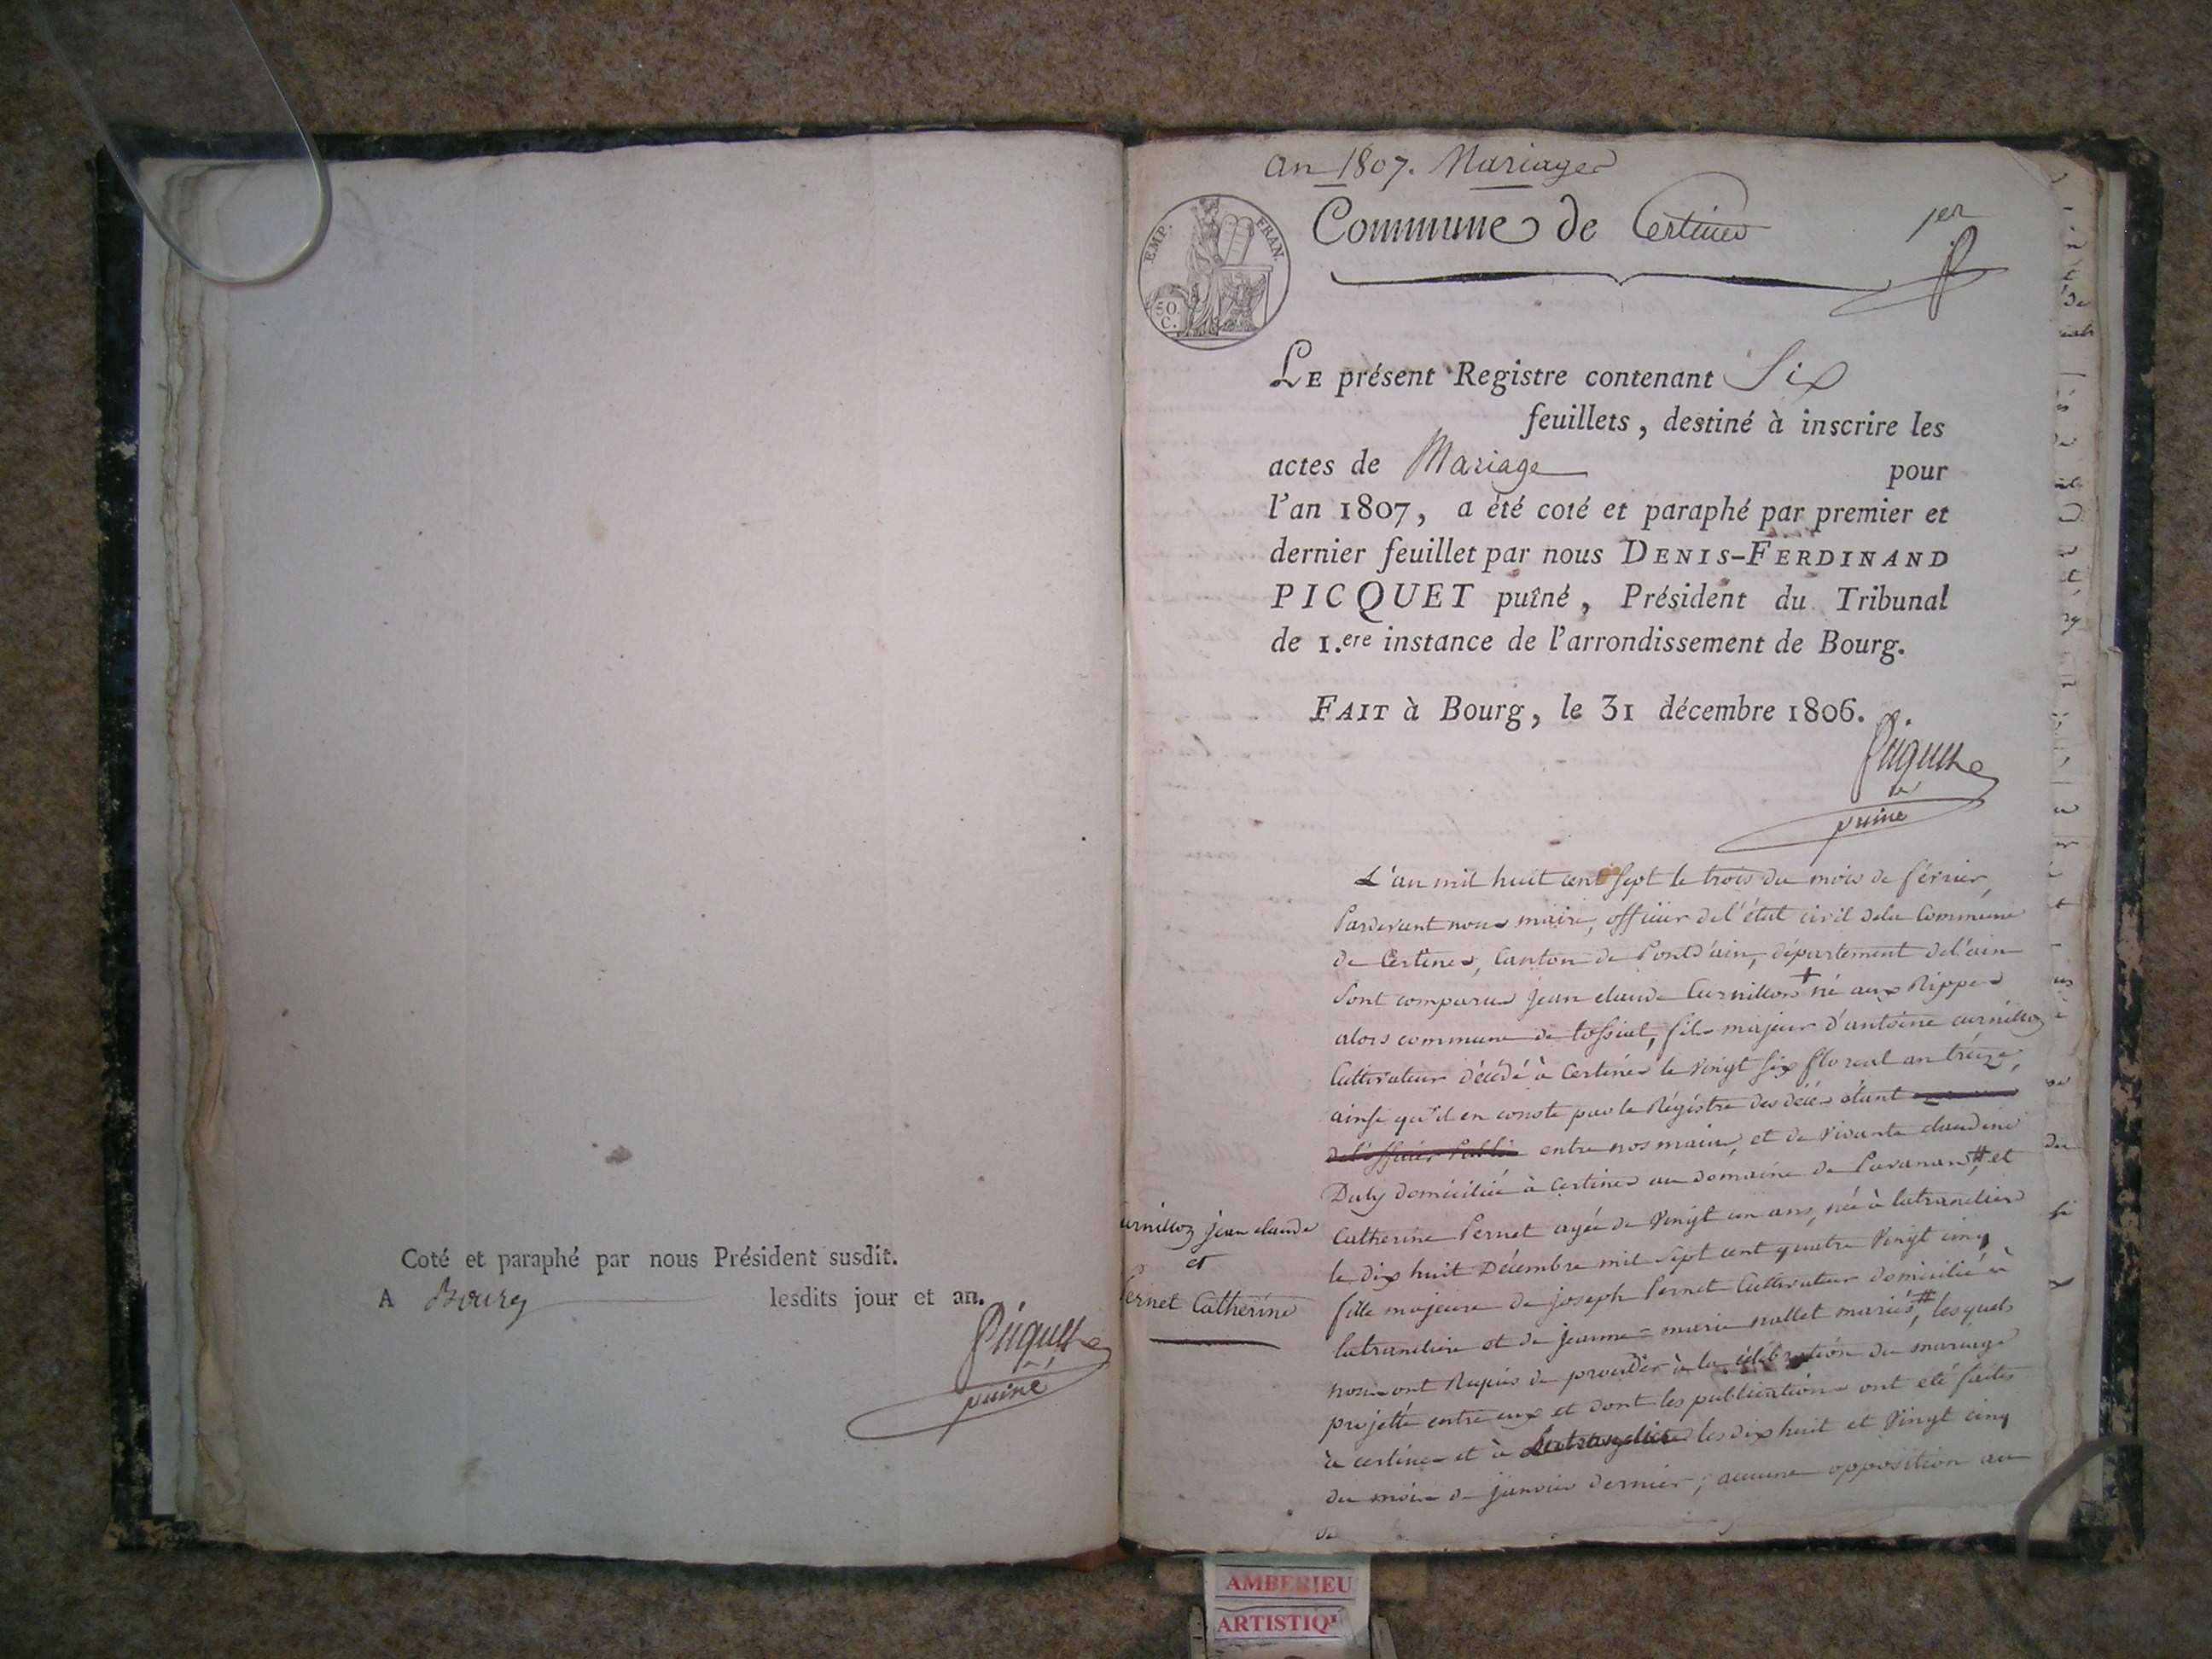 Coté et paraphé par nous Président susdit.
A Bourg lesdits jour et an.
Picquet
puiné
an 1807. Mariages
EMP. FRAN.
50 C.
Commune de Certines
1er
LE présent Registre contenant Six
feuillets, destiné à inscrire les
actes de Mariage pour
l'an 1807, a été coté et paraphé par premier et
dernier feuillet par nous DENIS-FERDINAND
PICQUET puîné, Président du Tribunal
de 1.ere instance de l'arrondissement de Bourg.
FAIT à Bourg, le 31 décembre 1806.
Picquet
puiné
L'an mil huit cent sept le trois du mois de février,
Pardevant nous maire, officier de l'état civil dela Commune
de Certines, Canton de Pontd'ain, département del'ain
sont comparus jean claude Curnillon né aux Rippes
alors commune de tossiat, fils majeur d'antoine curnillon
Cultivateur décédé à Certines le vingt six floreal an treize,
ainsi qu'il en conste par le Régistre des décès étant
del'officier Public entre nos mains, et de vivante claudine
Duly domiciliée à Certines au domaine de Lavanan # et
Catherine Pernet agée de vingt un ans, née à latranclière
le dix huit Décembre mil sept cent quatre vingt cinq
fille majeure de joseph Pernet Cultivateur domicilié à
latranclière et de jeanne-marie mallet mariés, # lesquels
nous ont Requis de procéder à la célébration du mariage
projetté entre eux et dont les publications ont été faites
à certines et à Latranclière les dix huit et vingt cinq
du mois de janvier dernier; aucune opposition au
urnillon jean claude
et
Pernet Catherine
AMBERIEU
ARTISTIQ